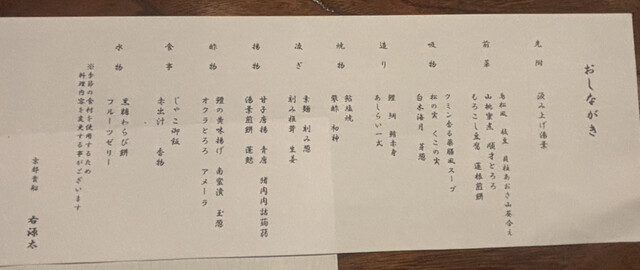 おしながき
先附
汲み上げ湯葉
前菜
鳥松風 枝豆 貝柱あおさ山葵合え
山桃蜜煮 順才とろろ
もろこし豆腐 蓮根煎餅
吸物
クミン香る薬膳風スープ
松の実 くこの実
白木海月 芽葱
造り
鯉 鯛 鮪赤身
あしらい一式
焼物
鮎塩焼
酢取 初神
凌ぎ
素麺 刻み葱
刻み椎茸 生姜
揚物
甘子唐揚 青唐 猪肉肉詰蒟蒻
湯葉煎餅 蓮麩
酢物
鱧の黄味揚げ 南蛮漬 玉葱
オクラとろろ アメーラ
食事
じゃこ御飯
赤出汁 香物
水物
黒糖わらび餅
フルーツゼリー
※季節の食材を使用するため
料理内容を変更する事がございます
京都貴船
右源太